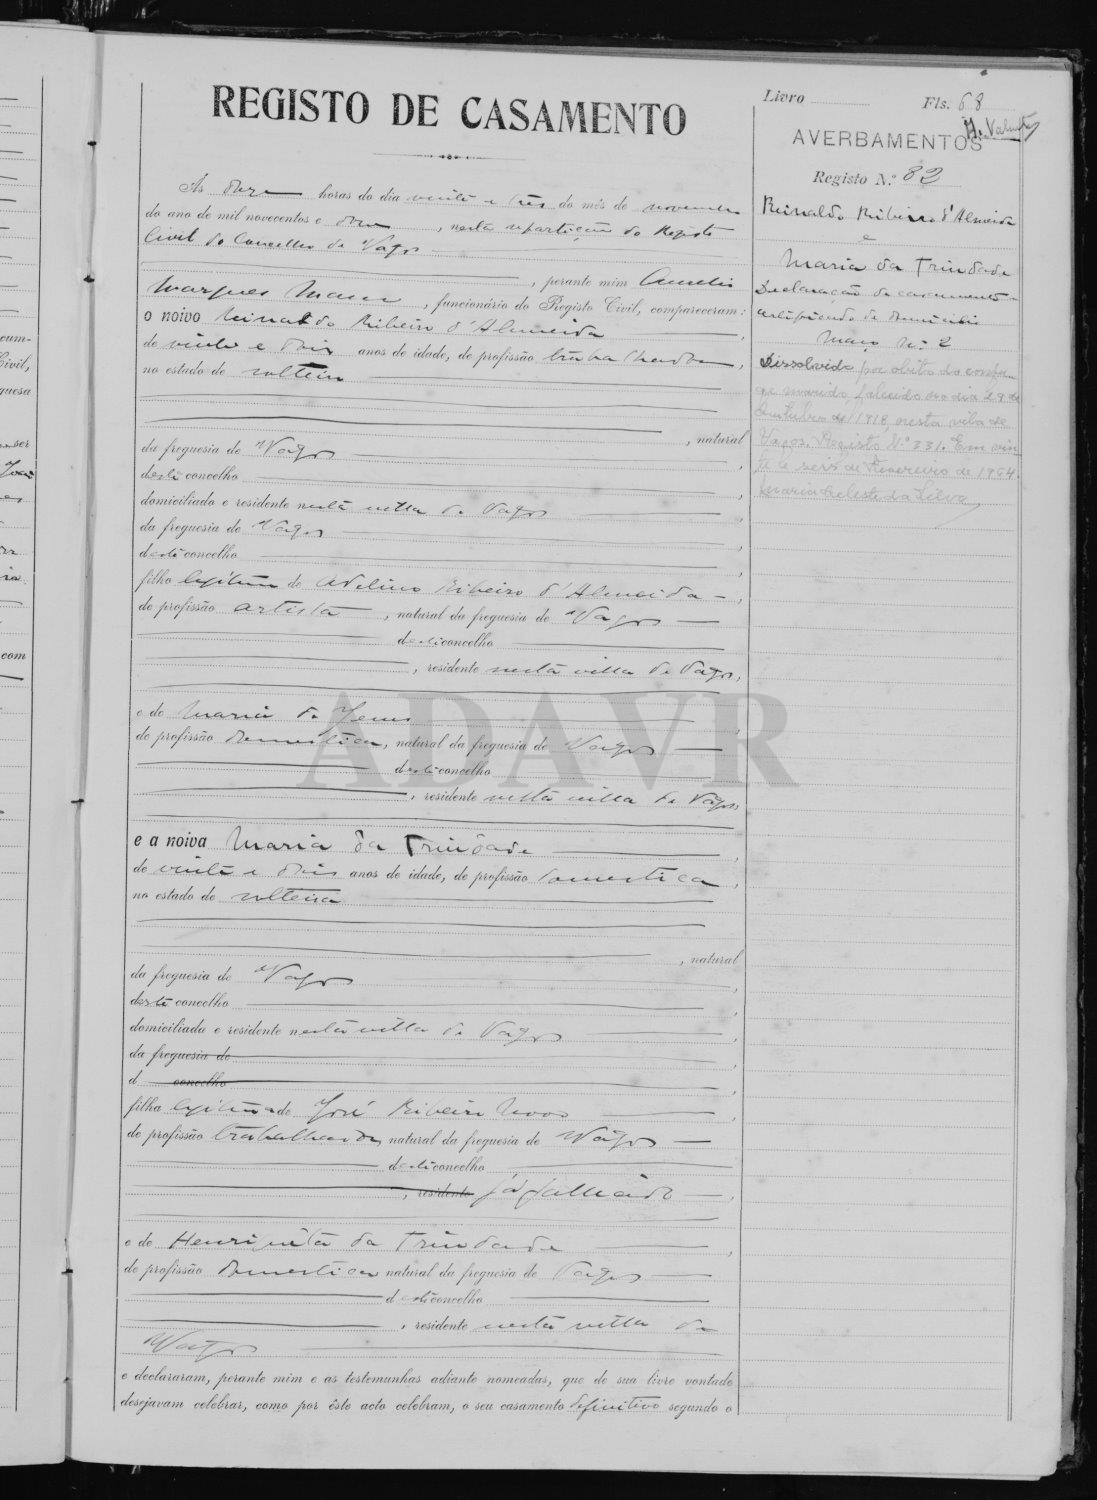 REGISTO DE CASAMENTO
Às doze horas do dia vinte e três do mês de novembro
do ano de mil novecentos e doze, nesta repartição do Registo
Civil do Concelho de Vagos
, perante mim Aurelio
Marques Mano, funcionário do Registo Civil, compareceram:
o noivo Reinaldo Ribeiro d'Almeida
de vinte e dois anos de idade, de profissão trabalhador,
no estado de solteiro
, natural
da freguesia de Vagos,
deste concelho,
domiciliado e residente nesta villa de Vagos,
da freguesia de Vagos,
deste concelho,
filho legitimo de Adelino Ribeiro d'Almeida,
de profissão artista, natural da freguesia de Vagos
deste concelho
, residente nesta villa de Vagos,
e de Maria de Jesus,
de profissão domestica, natural da freguesia de Vagos
deste concelho
, residente nesta villa de Vagos
e a noiva Maria da Trindade,
de vinte e dois anos de idade, de profissão domestica,
no estado de solteira
, natural
da freguesia de Vagos,
deste concelho,
domiciliada e residente nesta villa de Vagos,
da freguesia de,
d concelho,
filha legitima de José Ribeiro Novo,
de profissão trabalhador, natural da freguesia de Vagos
deste concelho
, residente já fallecido,
e de Henriqueta da Trindade,
de profissão domestica natural da freguesia de Vagos
deste concelho
, residente nesta villa de
Vagos
e declararam, perante mim e as testemunhas adiante nomeadas, que de sua livre vontade
desejavam celebrar, como por êste acto celebram, o seu casamento definitivo segundo o
Livro Fls. 68
AVERBAMENTOS
Registo N.º 82
Reinaldo Ribeiro d'Almeida
e
Maria da Trindade
Declaração de casamento
certificado de domicilio
Maço N.º 2
Dissolvido por óbito do conju-
ge marido, falecido no dia 28 de
Outubro de 1918, nesta vila de
Vagos. Registo N.º 331. Em vin-
te e seis de Fevereiro de 1964.
Maria Celeste da Silva
ADAVR